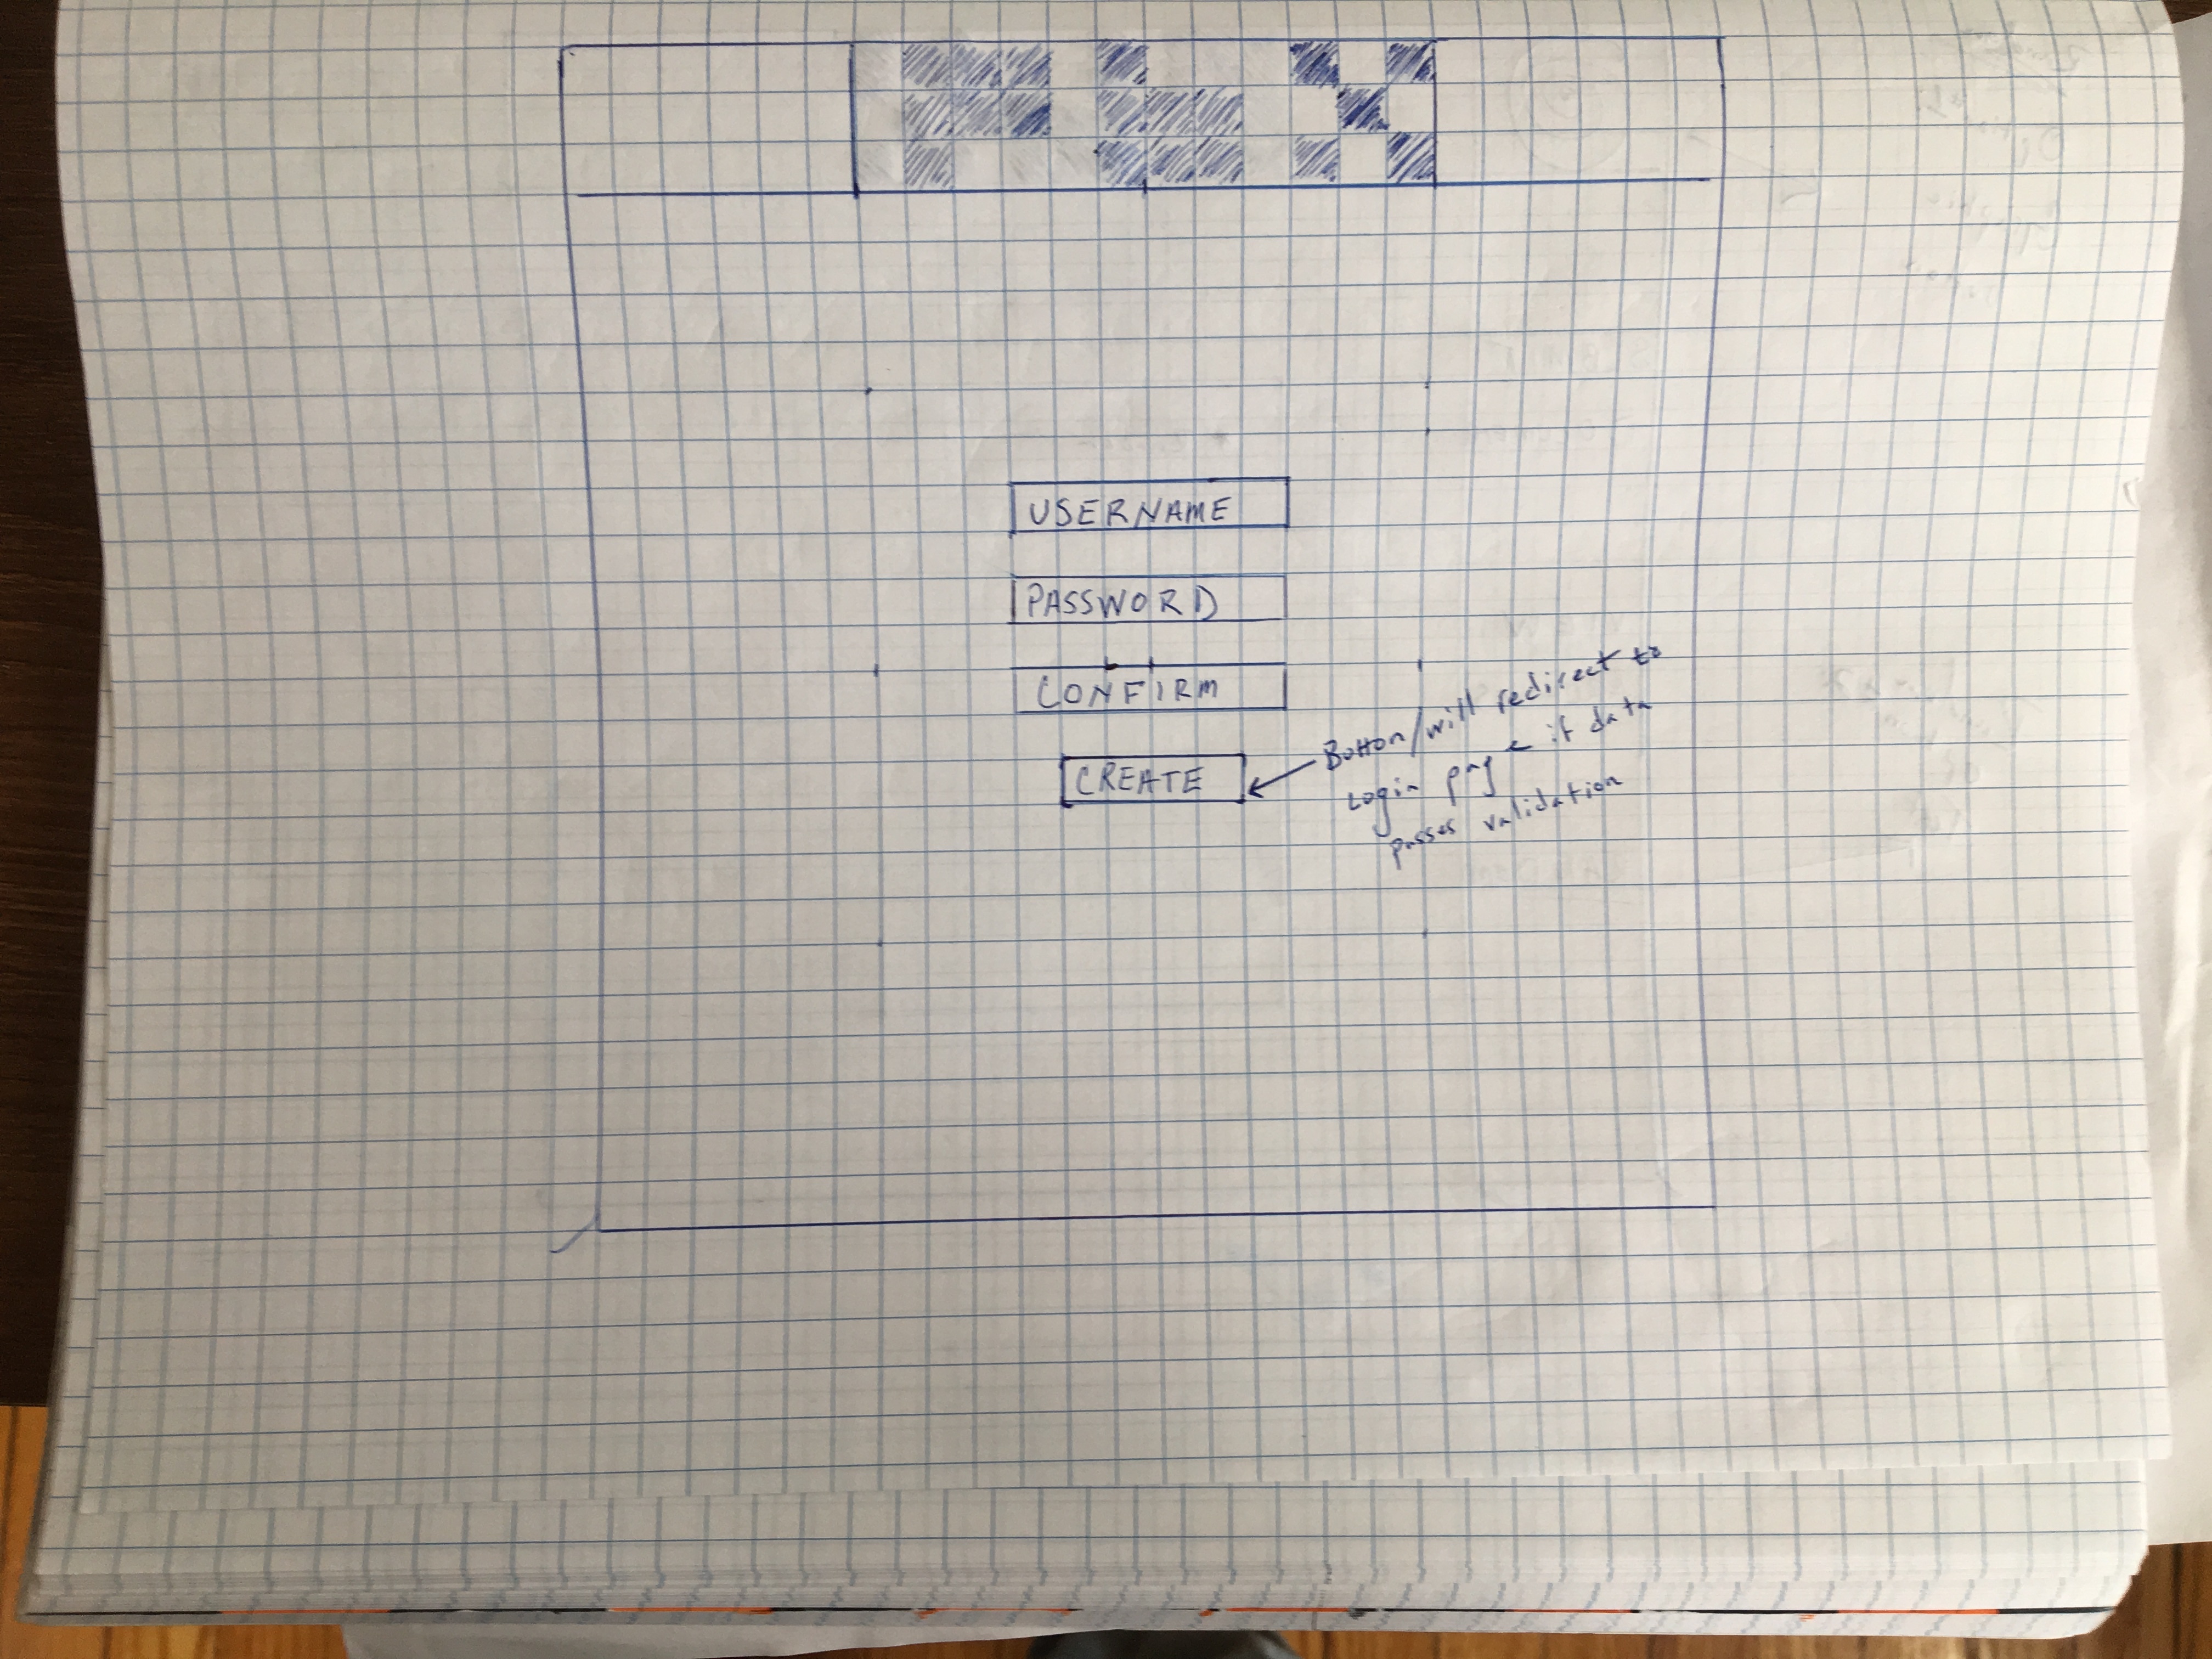 USERNAME
PASSWORD
CONFIRM
CREATE
Button/will redirect to
Login page if data
passes validation